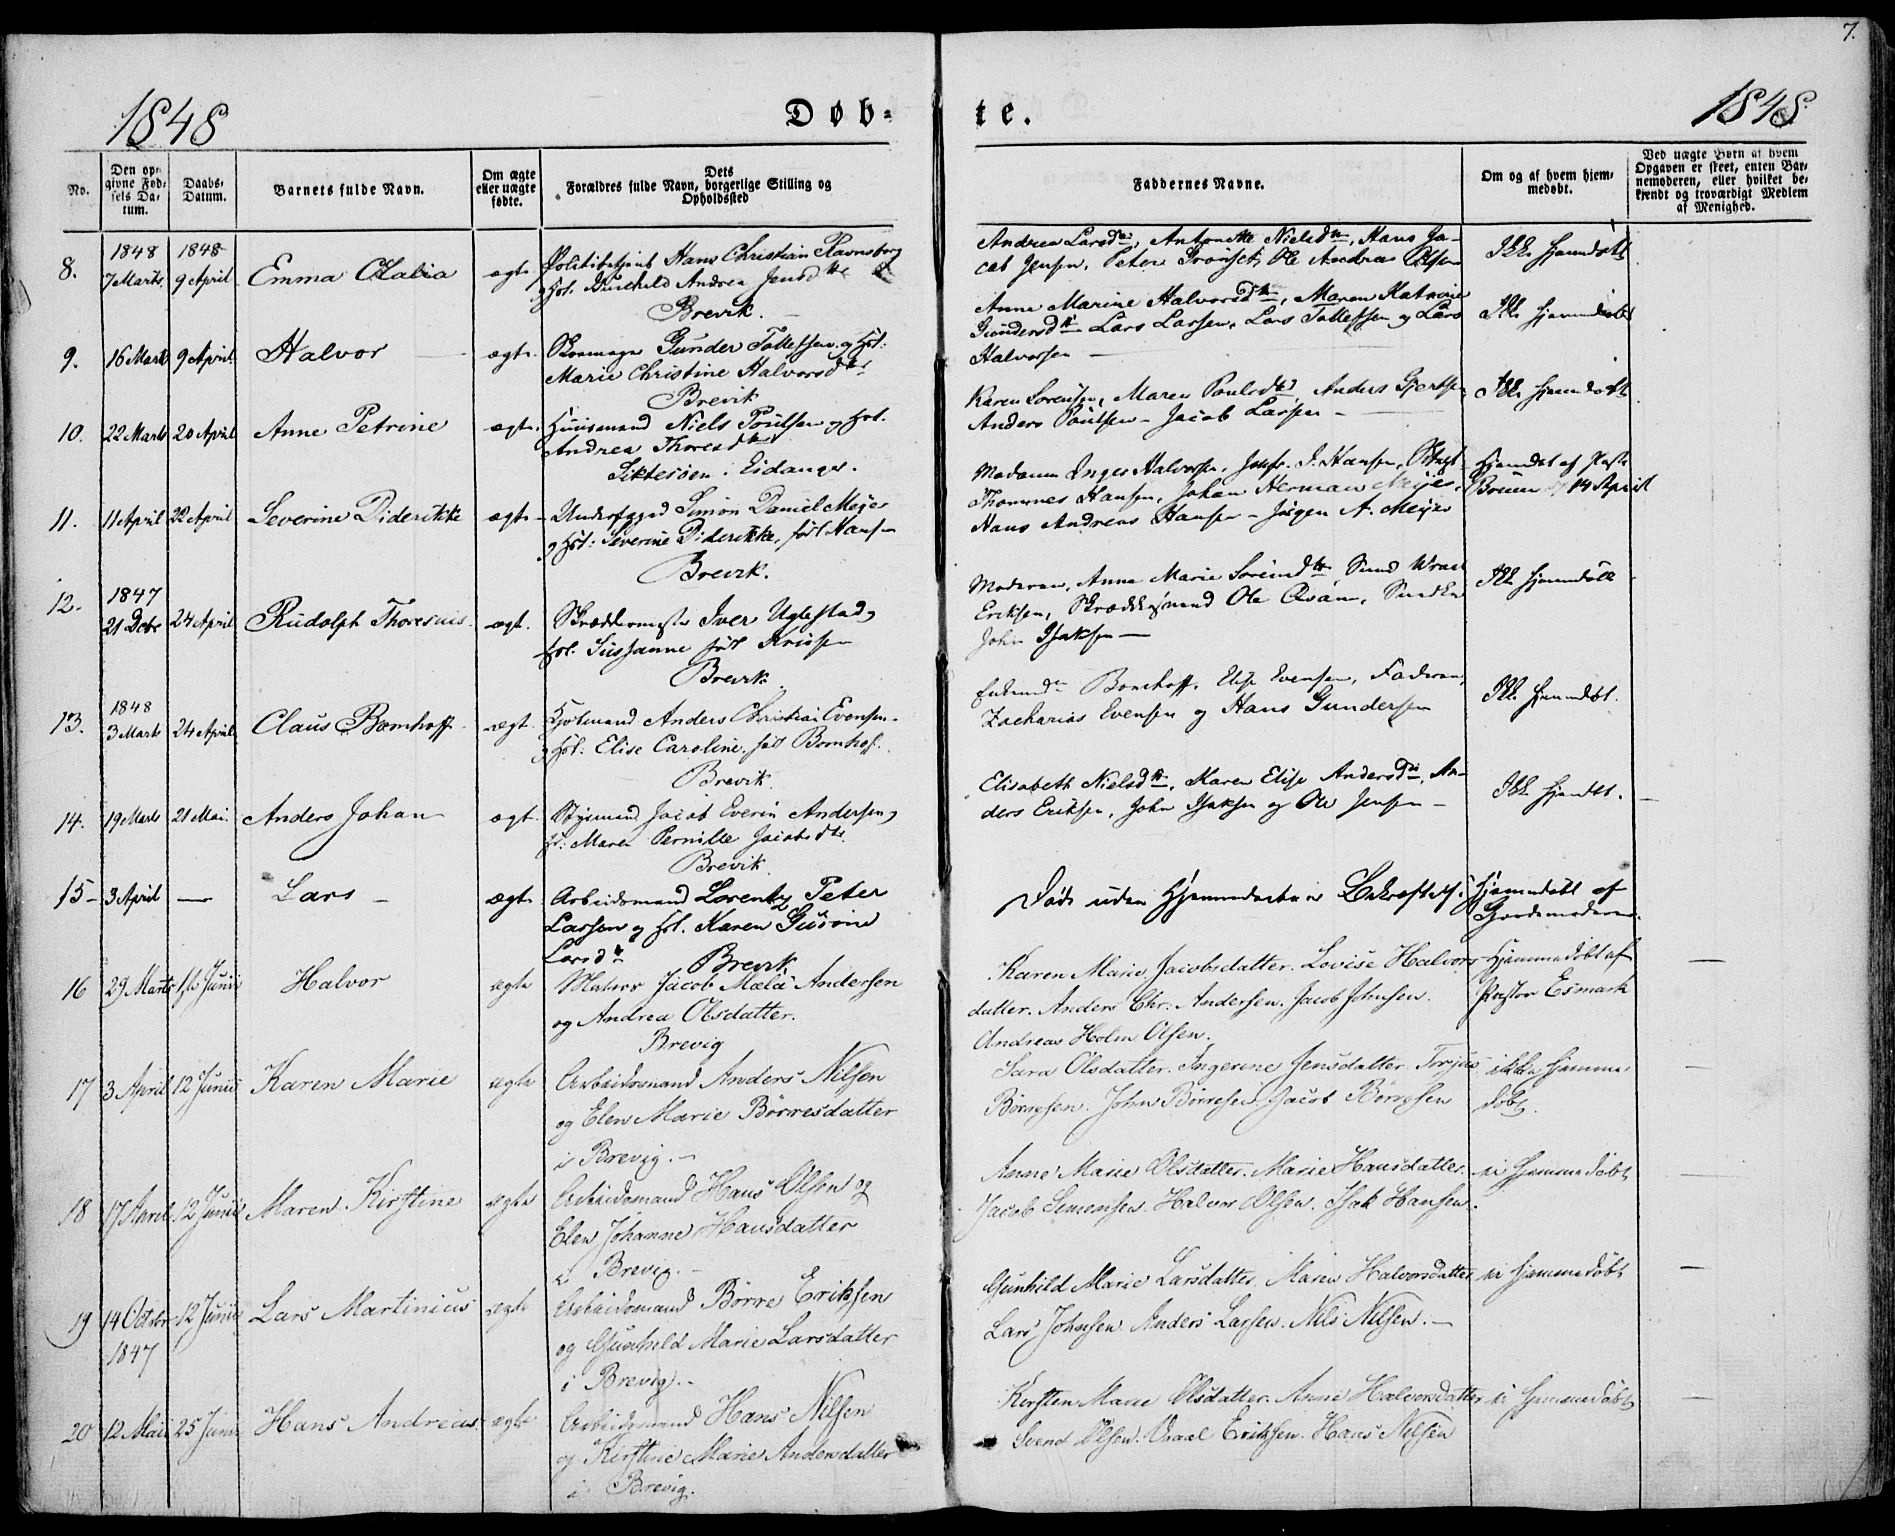 7.
1848
Døb-
te.
1848
No.
Den op-
givne Fød-
sels Da-
tum.
Daabs-
Datum.
Barnets fulde Navn.
Om ægte
eller uægte
fødte.
Dets
Forældres fulde Navn, borgerlige Stilling og
Opholdssted
Faddernes Navne.
Om og af hvem hjem-
medøbt.
Ved uægte Børn af hvem
Opgaven er skeet, enten Bar-
nemoderen, eller hvilket be-
kjendt og troværdigt Medlem
af Menighed.
8.
1848
7 Marts
1848
9 April
Emma
ægte
Hans Christian
Andrea Jensdtr
Brevik.
Andrea Larsdtr, Antonette Nielsdtr, Hans Ja-
cob Jensen, Peter Ole Andreas Olsen
Ikke Hjemdøbt
9.
16 Marts
9 April
Halvor
ægte.
Skomager Gunder Tollefsen og Hst:
Marie Christine Halvorsdtr
Brevik
Anne Marine Halvorsdtr, Maren Katrine
Gundersdtr Lars Larsen, Lars Tollefsen og Lars
Halvorsen
Ikke Hjemdøbt
10.
22 Marts
20 April
Anne Petrine
ægte.
Huusmand Niels Poulsen og Hst.
Andrea Thoresdtr
Siktesøen i Eidanger.
Karen Sørensen, Maren Poulsdtr, Anders
Anders Poulsen - Jacob Larsen -
Ikke Hjemdøbt
11.
11 April
22 April
Severine Diderikke
ægte
Simon Daniel Meyer
og Hst: Severine Diderikke, født Hansen
Brevik.
Madame Inger Halvorsen, Jomfr. Hansen,
Thomnes Hansen, Johan Herman Meyer,
Hans Andreas Hansen - Jørgen A. Meyer
Hjemdøbt af
14 April
12.
1847
21 Decbr
24 April
Rudolph Thoresius.
ægt.
Skræddermester Iver Uglestad og
Hst. Susanne født
Brevik
Moderen, Anne Marie Svend
Eriksen, Ole
John Isaksen -
Ikke Hjemdøbt
13.
1848
3 Marts
24 April
Claus Bomhoff
ægt.
Anders Christian Evensen
og Hst: Elise Caroline, født Bomhof.
Brevik
Bomhoff, Elise Evensen, Faderen,
Zacharias Evensen og Hans Gundersen
Ikke Hjemdøbt.
14.
19 Marts
21 Mai.
Anders Johan
ægt.
Styrmand Jacob Everin Andersen og
H: Maren Pernille Jacobsdtr.
Brevik
Elisabeth Nielsdtr, Karen Elise Andersdtr, An-
ders Eriksen, John Isaksen og Ole Jensen -
Ikke Hjemdøbt.
15-
3 April
Lars -
ægte
Arbeidsmand Lorentz Peter
Larsen og Hst. Karen
Larsdtr Brevik
Død uden Hjemmedaabens Bekræftelse.
Hjemmedøbt af
Jordemoderen.
16
29 Marts
1ste Junii
Halvor
ægte
Matros Jacob Mala Andersen
og Andrea Olsdatter.
Brevig
Karen Marie Jacobsdatter. Lovise Halvors-
datter. Anders Chr. Andersen. Jacob Johnsen.
Andreas Holm Olsen.
Hjemmedøbt af
Pastor Esmark
17
3 April
12 Junii
Karen Marie
ægte
Arbeidsmand Anders Nilsen
og Elen Marie Börresdatter
i Brevig. -
Sara Olsdatter. Ingerine Jensdatter. Terjus
Börresen. John Börresen. Jacob Börresen
ikke hjemme-
døbt.
18
17 April
12 Junii
Maren Kirstine
ægte
Arbeidsmand Hans Olsen og
Elen Johanne Hansdatter
i Brevig. -
Anne Marie Olsdatter. Marie Hansdatter.
Jacob Simonsen. Halvor Olsen. Isak Hansen.
ei hjemmedøbt
19
14 Octobr
1847
12 Junii
Lars Martinius
ægte
Arbeidsmand Börre Eriksen
og Gunhild Marie Larsdatter
i Brevig. -
Gunhild Marie Larsdatter. Maren Halvorsdatter.
Lars Johnsen. Anders Larsen. Nils Nilsen. -
ei hjemmedøbt
20
12 Mai
25 Junii
Hans Andreas
ægte
Arbeidsmand Hans Nilsen
og Kirstine Marie Andersdatter
i Brevig.
Kirsten Marie Olsdatter. Anne Halvorsdatter
Svend Olsen. Vraal Eriksen. Hans Nilsen
ei hjemmedøbt